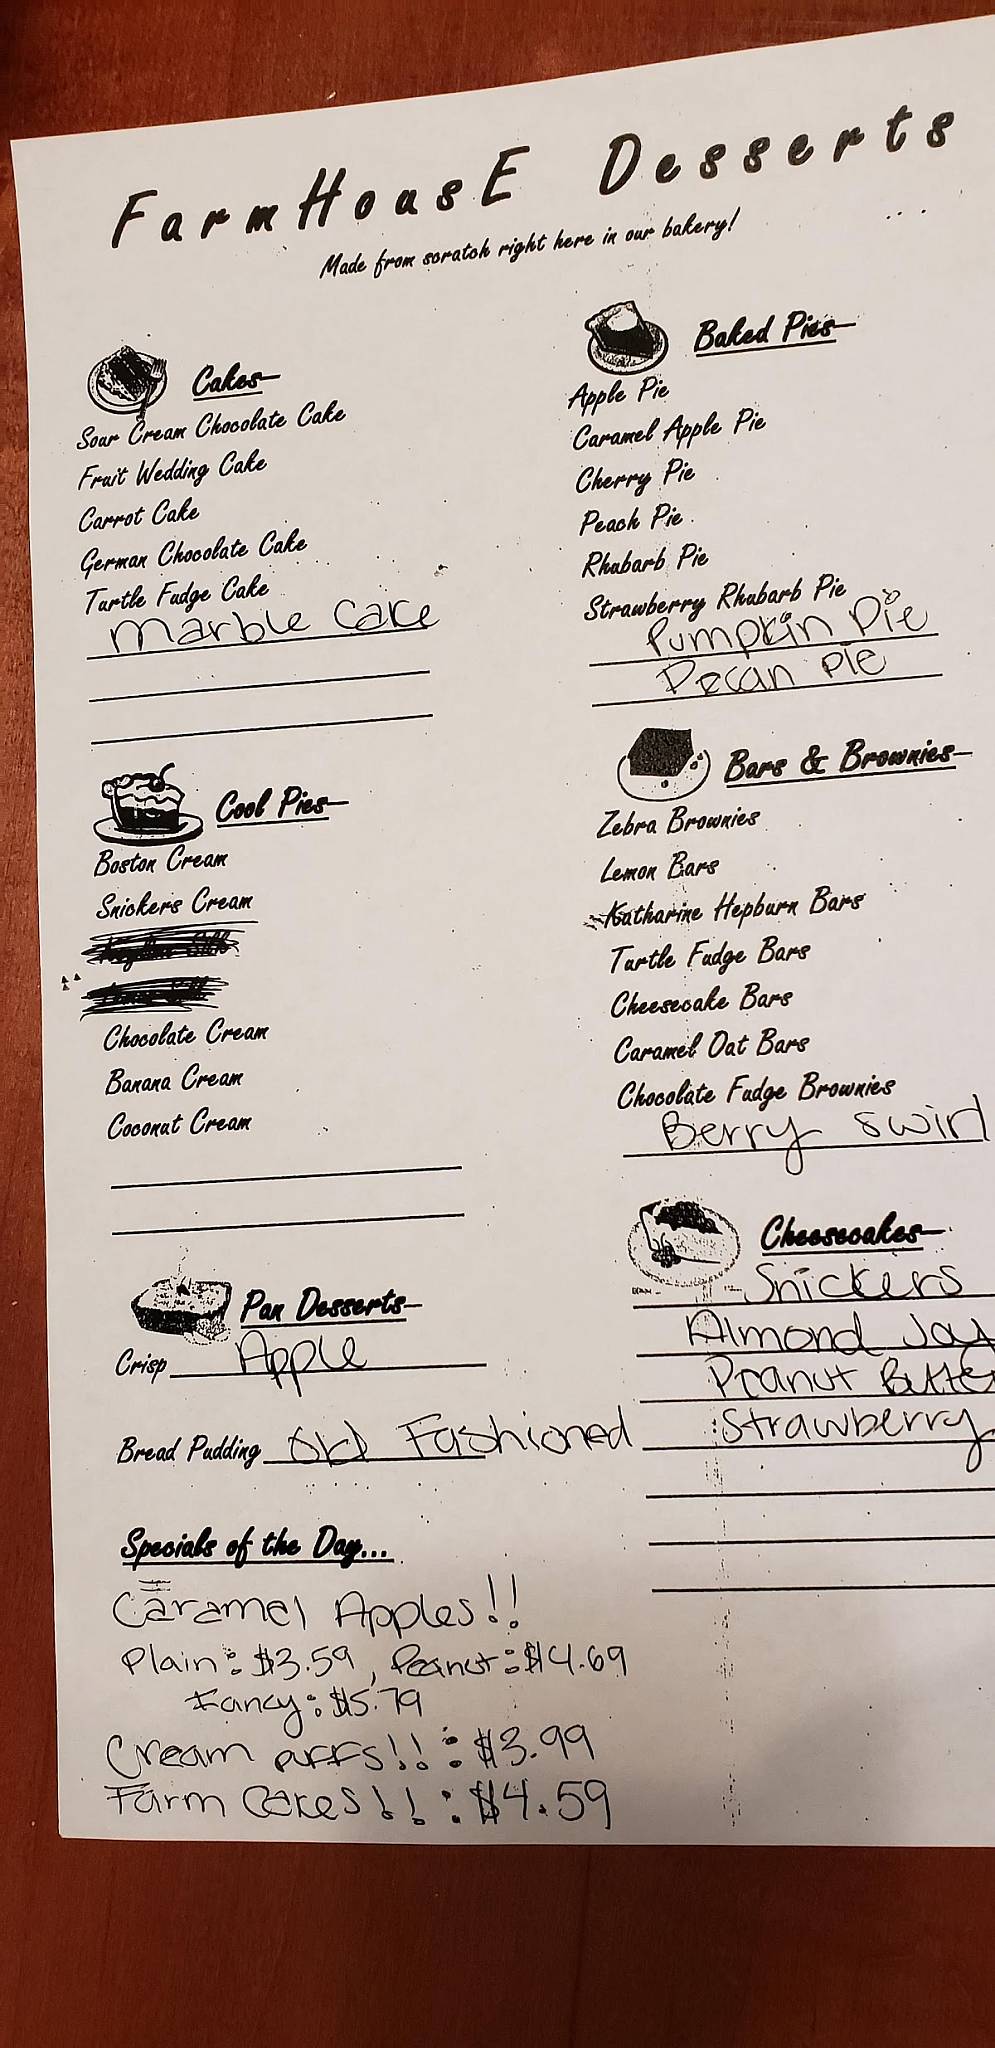 FarmHousE Desserts
Made from scratch right here in our bakery!
Cakes-
Sour Cream Chocolate Cake
Fruit Wedding Cake
Carrot Cake
German Chocolate Cake
Turtle Fudge Cake
Marble Cake
Cool Pies-
Boston Cream
Snickers Cream
Chocolate Cream
Banana Cream
Coconut Cream
Pan Desserts-
Crisp Apple
Bread Pudding Old Fashioned
Specials of the Day...
Caramel Apples!!
Plain: $3.59, Peanut: $4.69
Fancy: $5.79
Cream Puffs!!: $3.99
Farm Cakes!!: $4.59
Baked Pies-
Apple Pie
Caramel Apple Pie
Cherry Pie
Peach Pie
Rhubarb Pie
Strawberry Rhubarb Pie
Pumpkin Pie
Pecan Pie
Bars & Brownies-
Zebra Brownies
Lemon Bars
Katharine Hepburn Bars
Turtle Fudge Bars
Cheesecake Bars
Caramel Oat Bars
Chocolate Fudge Brownies
Berry Swirl
Cheesecakes-
Snickers
Almond Joy
Peanut Butte
Strawberry